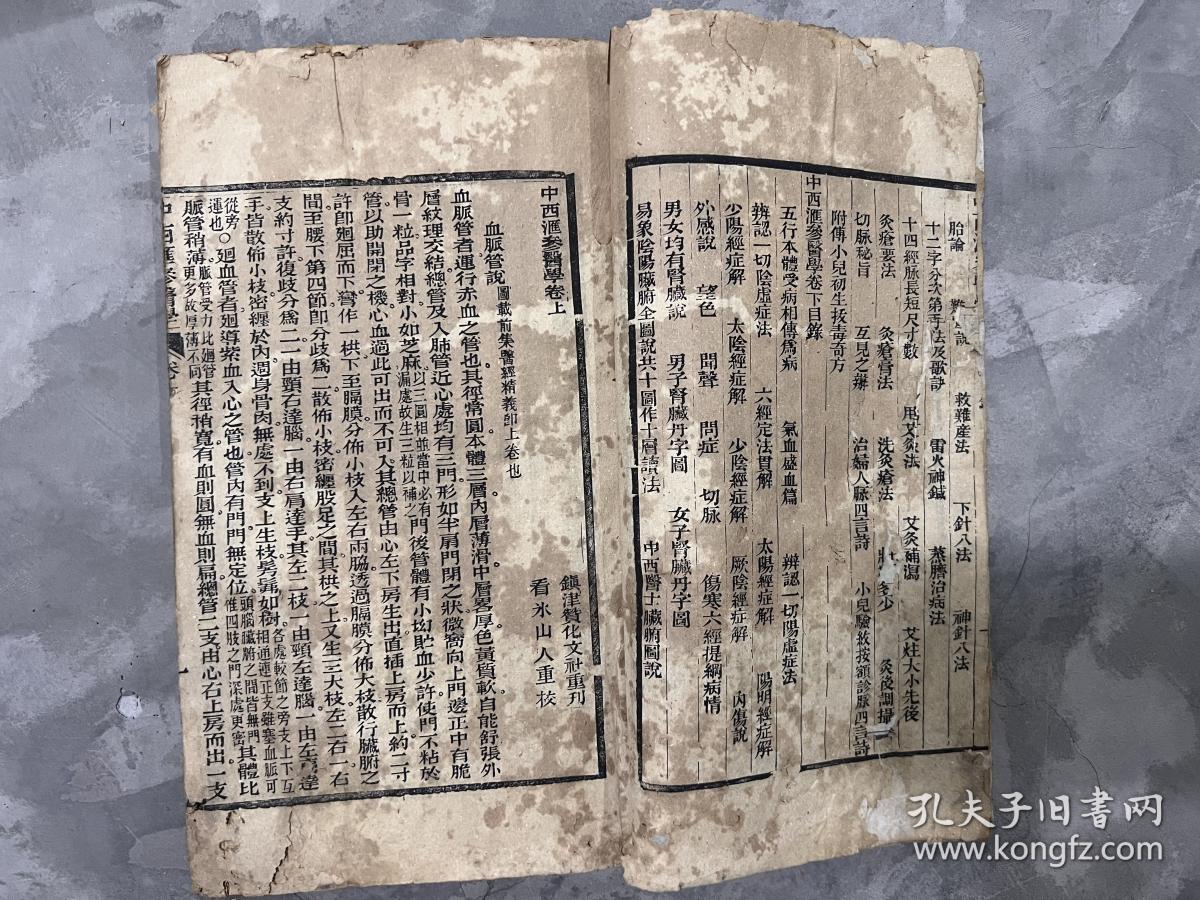 胎論 難產說 救難產法 下針八法 神針八法
十二字分次第手法及歌訣 雷火神鍼 蒸臍治病法
十四經脈長短尺寸數 用艾灸法 艾灸補瀉 艾炷大小先後
灸瘡要法 灸瘡膏法 洗灸瘡法 壯數多少 灸後調攝
切脈秘旨 互見之辨 治婦人脈四言詩 小兒驗紋按額診脈四言詩
附傳小兒初生拔毒奇方
中西滙參醫學卷下目錄
五行本體受病相傳爲病 氣血盛血篇 辨認一切陽虛症法
辨認一切陰虛症法 六經定法貫解 太陽經症解 陽明經症解
少陽經症解 太陰經症解 少陰經症解 厥陰經症解 內傷說
外感說 望色 聞聲 問症 切脉 傷寒六經提綱病情
男女均有腎臟說 男子腎臟丹字圖 女子腎臟丹字圖
易象陰陽臟腑全圖說共十圖作十層讀法 中西醫士臟腑圖說
中西滙參醫學卷上
鎭津贊化文社重刊
看氷山人重校
血脈管說 圖載前集醫經精義卽上卷也
血脈管者運行赤血之管也其徑常圓本體三層內層薄滑中層畧厚色黃質軟自能舒張外
層紋理交結總管及入肺管近心處均有三門形如半扇門閉之狀微窩向上門邊正中有脆
骨一粒品字相對小如芝麻以三圓相並當中必有漏處故生三粒以補之門後管體有小均貯血少許使門不粘於
管以助開閉之機心血過此可出而不可入其總管由心左下房生出直插上房而上約二寸
許卽廻屈而下彎作一栱下至膈膜分佈小枝入左右兩脇透過膈膜分佈大枝散行臟腑之
間至腰下第四節卽分歧爲二散佈小枝密纒股足之間其栱之上又生三大枝左二右一右
支約寸許復歧分爲二一由頸右達腦一由右肩達手其左二枝一由頸左達腦一由左肩達
手皆散佈小枝密纒於內週身骨肉無處不到支上生枝髣髴如樹各處較節之旁支上下互相通連正支雖塞血脈可
從旁運也○廻血管者廻導紫血入心之管也管內有門門無定位頭腦臟腑之間皆無門惟四肢之門深處更密其體比
脈管稍薄脈管受力比廻管更多故厚薄不同其徑稍寬有血則圓無血則扁總管二支由心右上房而出一支
中西滙參醫學
孔夫子旧書网
www.kongfz.com